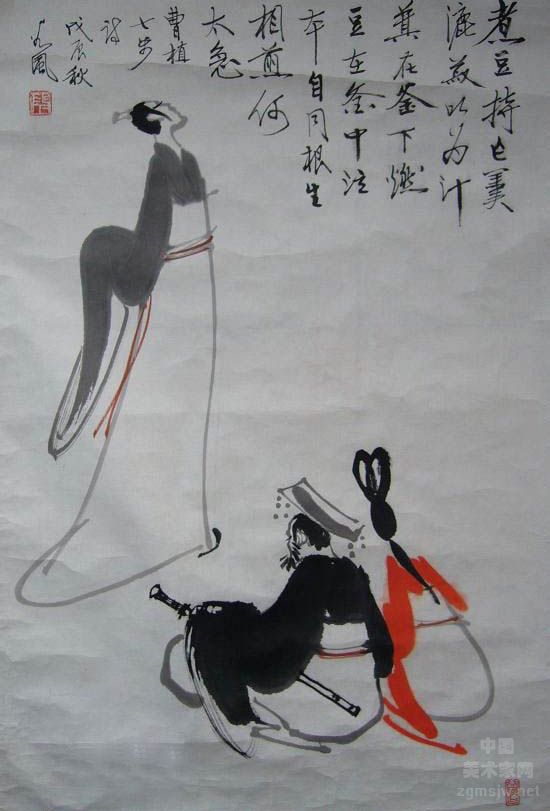 煮豆持作羹
漉菽以为汁
萁在釜下燃
豆在釜中泣
本自同根生
相煎何
太急
曹植
七步
诗
戊辰秋
风
中国
美术家网
zgmsjw.net